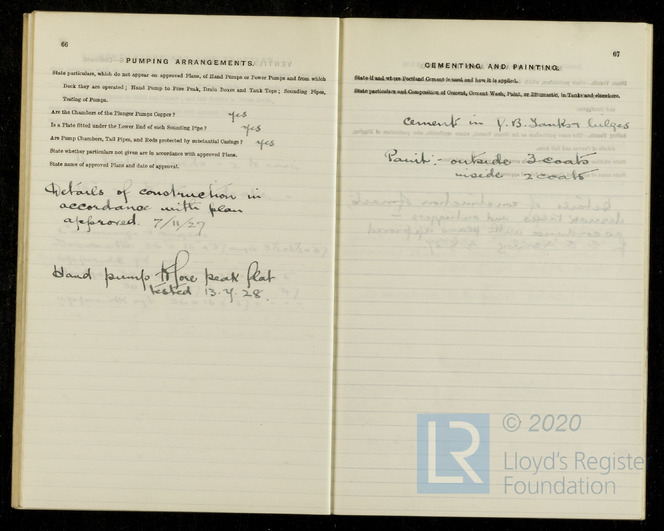 66
PUMPING ARRANGEMENTS.
State particulars, which do not appear on approved Plans, of Hand Pumps or Power Pumps and from which
Deck they are operated; Hand Pump to Fore Peak, Drain Boxes and Tank Tops; Sounding Pipes,
Testing of Pumps.
Are the Chambers of the Plunger Pumps Copper? yes
Is a Plate fitted under the Lower End of each Sounding Pipe? yes
Are Pump Chambers, Tail Pipes, and Rods protected by substantial Casings? yes
State whether particulars not given are in accordance with approved Plans.
State name of approved Plans and date of approval.
Details of construction in
accordance with plan
approved 7/11/27
Hand pump to fore peak flat
tested 13.4.28.
67
CEMENTING AND PAINTING.
State if and where Portland Cement is used and how it is applied.
State particulars and Composition of Cement, Cement Wash, Paint, or Bitumastic, in Tanks and elsewhere.
Cement in D.B. Tanks & bilges
Paint:- outside 3 coats
inside 2 coats
LR
© 2020
Lloyd's Register
Foundation